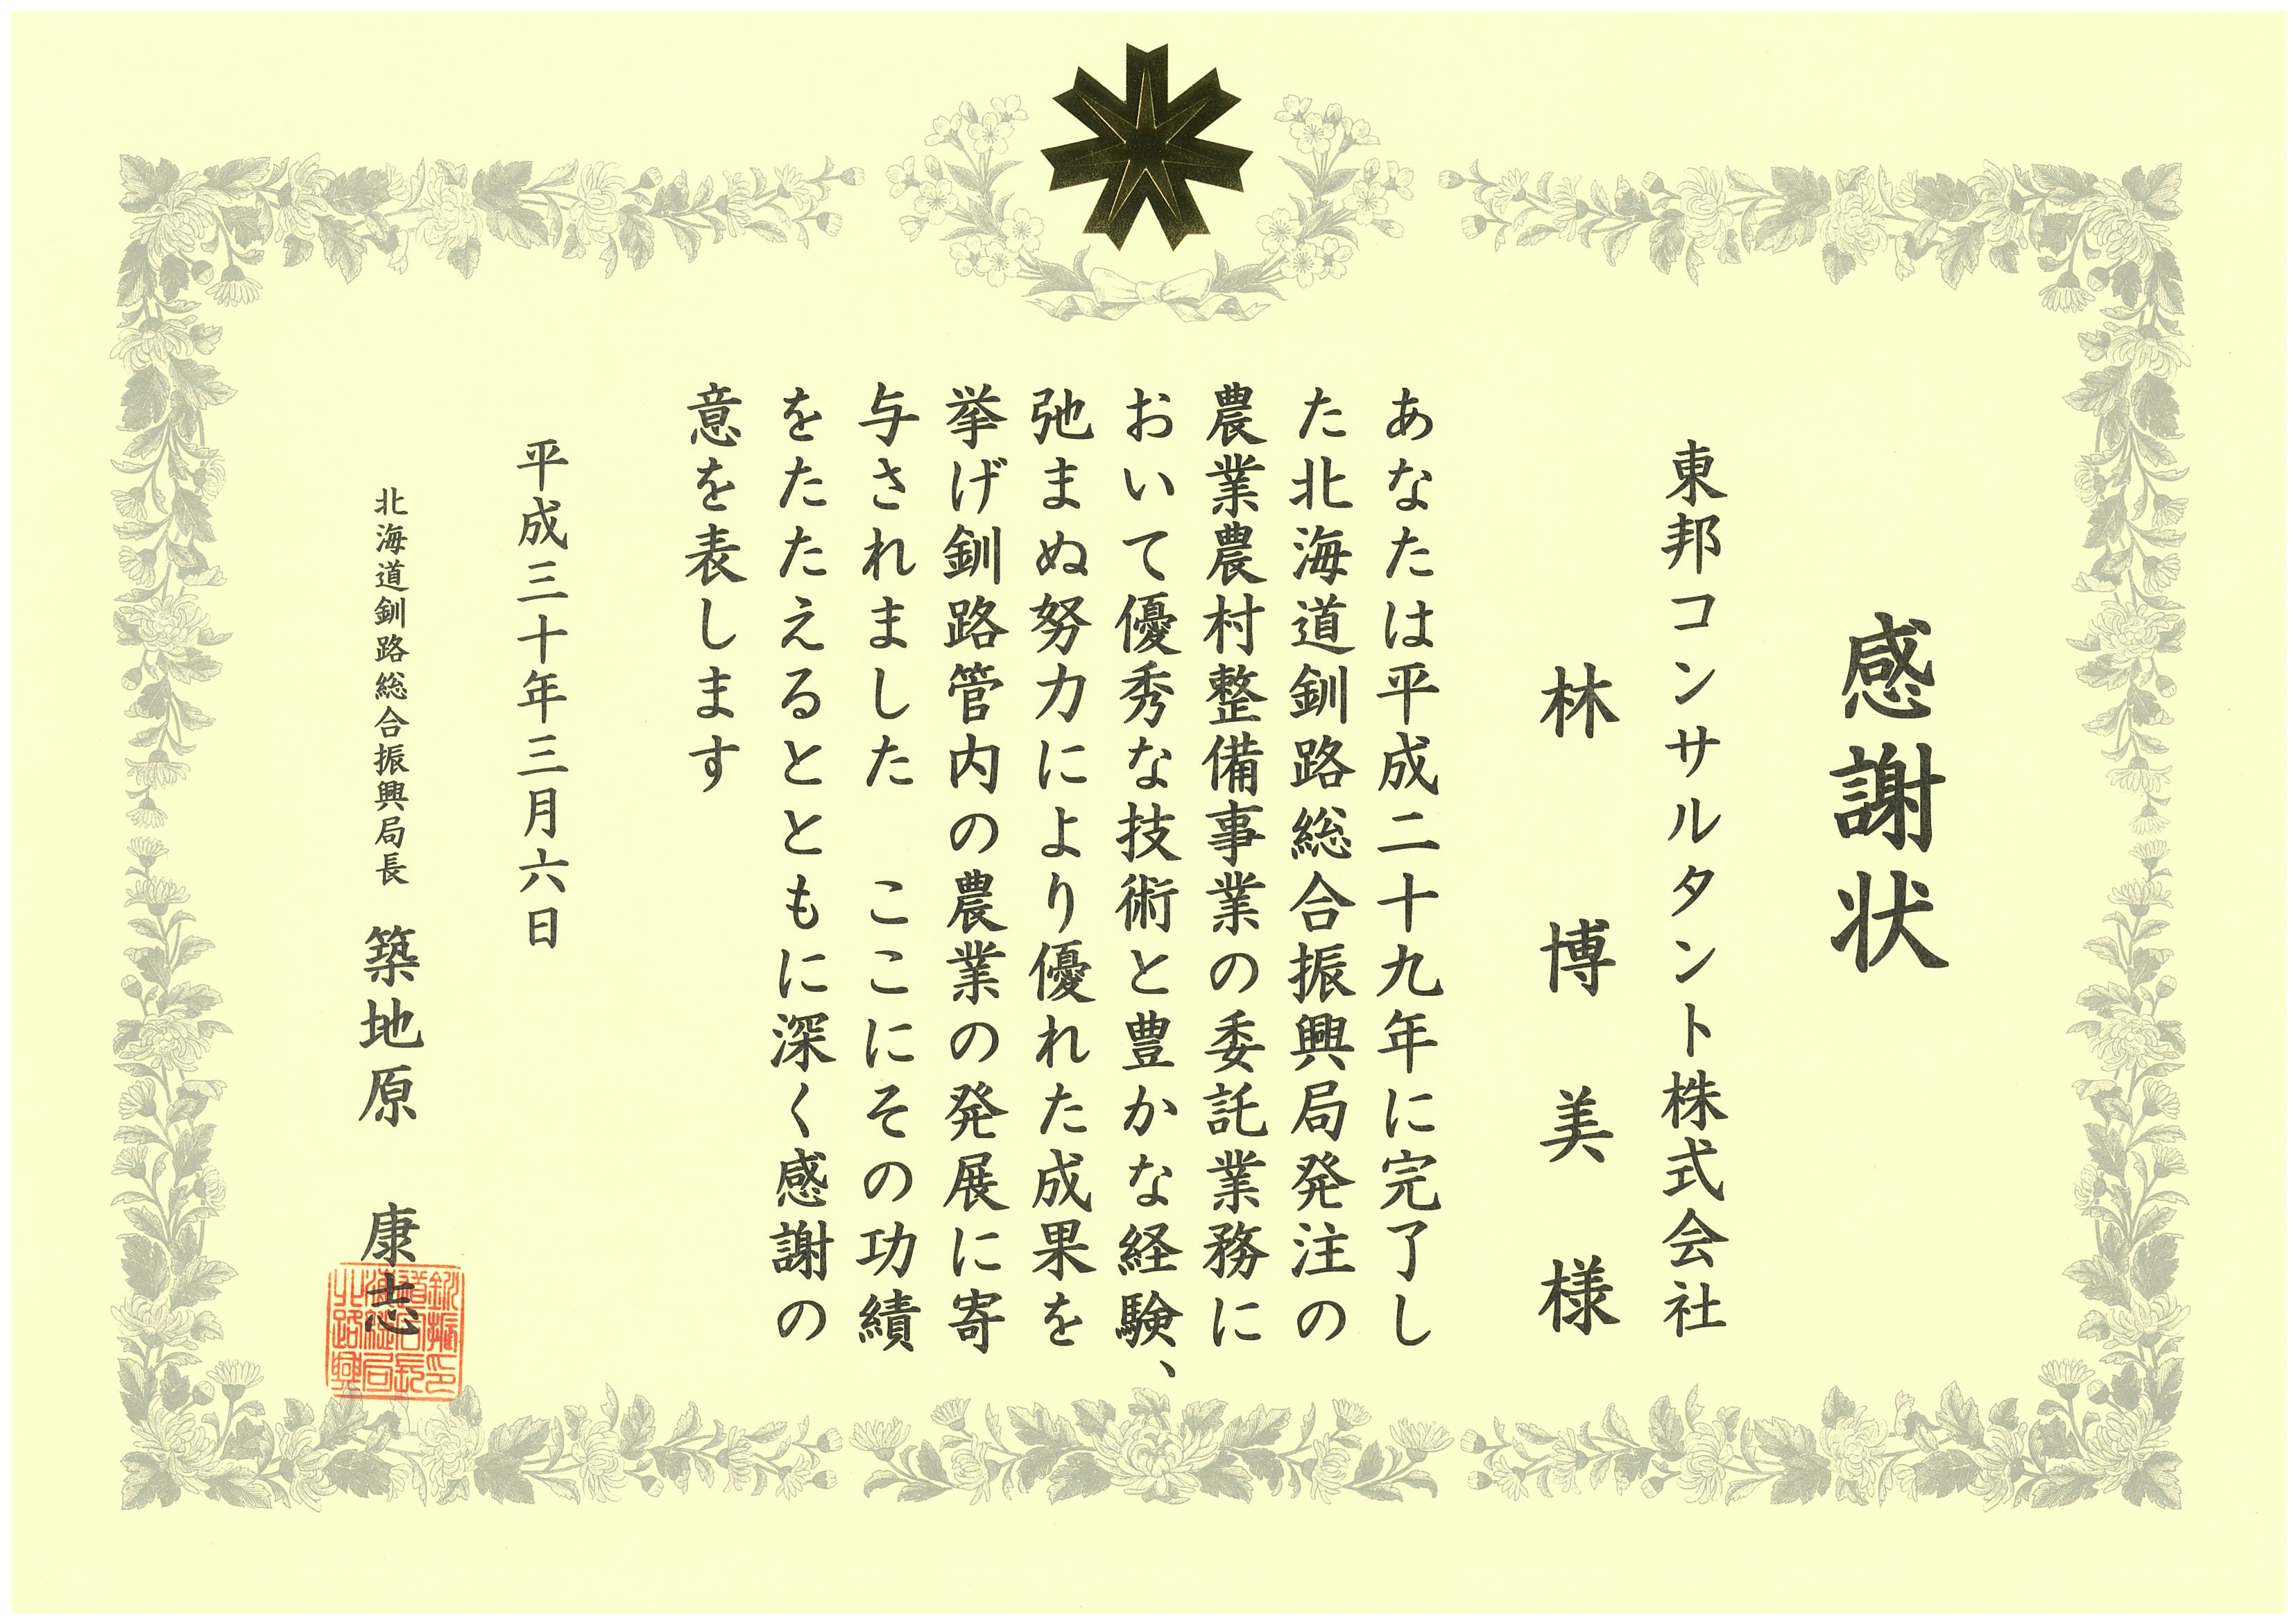 感謝状
東邦コンサルタント株式会社
林 博美様
あなたは平成二十九年に完了し
た北海道釧路総合振興局発注の
農業農村整備事業の委託業務に
おいて優秀な技術と豊かな経験、
弛まぬ努力により優れた成果を
挙げ釧路管内の農業の発展に寄
与されました　ここにその功績
をたたえるとともに深く感謝の
意を表します
平成三十年三月六日
北海道釧路総合振興局長 築地原 康志